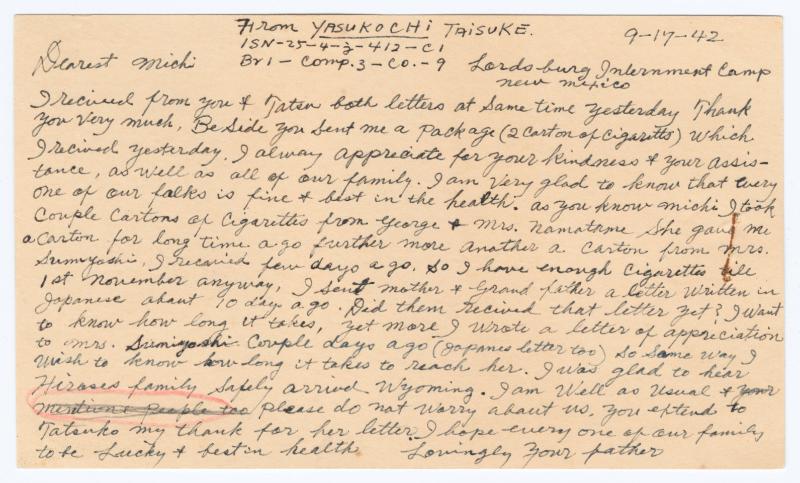 From YASUKOCHI TAISUKE. 9-17-42
ISN-25-4-3-412-C1
Dearest Michi Br1- Comp.3-Co.-9 Lordsburg Internment Camp
New Mexico
I recived from you & Tatsu both letters at same time yesterday Thank
you very much, Beside you sent me a Package (2 carton of cigaretts) which
I recived yesterday. I alway appreciate for your kindness & your assis-
tance, as well as all of our family. I am very glad to know that every
one of our falks is fine & best in the health. as you know michi I took
Couple Cartons of cigarettis from George & Mrs. Namatame She gave me
a carton for long time ago further more another a carton from Mrs.
Sumiyoshi, I recaived few days ago. So I have enough cigarettes till
1st November anyway, I sent mother & Grand father a letter written in
Japanese about 10 day ago. Did them recived that letter yet? I want
to know how long it takes, yet more I wrote a letter of appreciation
to Mrs. Sumiyoshi Couple days ago (Japanes letter too) So same way I
wish to know how long it takes to reach her. I was glad to hear
Hirases family safely arrived Wyoming. I am well as usual & your
mention & People too please do not worry about us, you eptend to
Tatsuko my thank for her letter. I hope every one of our family
to be Lucky & best in health Lovingly Your father